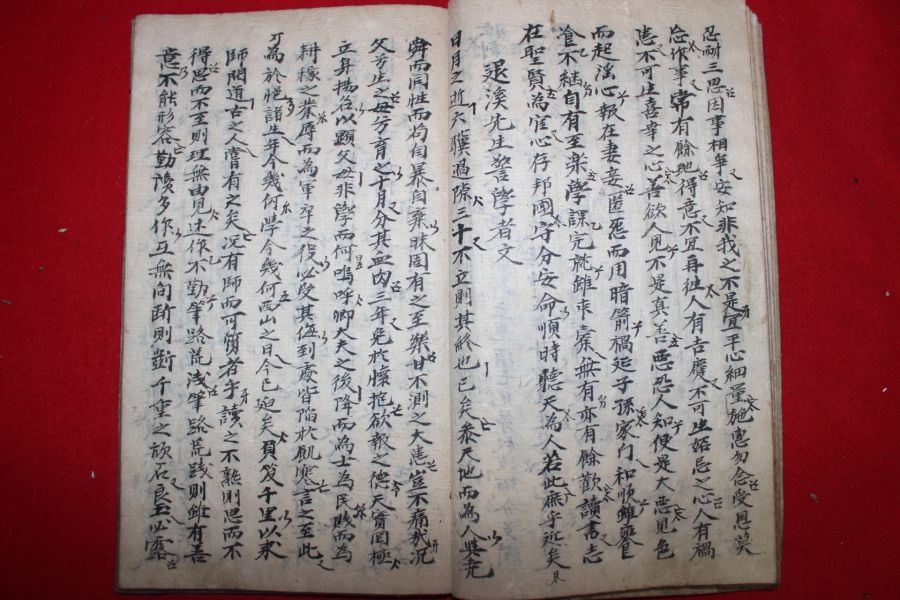 忍耐三思因事相爭安知非我之不是宜平心細量施惠勿念受恩莫
忘作事常有餘地得意不宜再往人有吉慶不可生妬忌之心人有禍
患不可生喜幸之心善欲人見不是真善惡恐人知便是大惡見色
而起淫心報在妻妾匿怨而用暗箭禍延子孫家門和順雖饔
飧不継自有至楽學課完就雖束橐無有亦有餘歡讀書志
在聖賢為官心存邦國守分安命順時聽天為人若此庶乎近矣
退溪先生警學者文
日月之逝六驥過隙三十不立則其終也已矣參天地而為人與堯
舜而同性而苟自暴自棄昧固有之至樂甘不測之大患豈不痛哉况
父兮生之母兮育之十月分其血肉三年免於懷抱欲報之德天實罔極
立身揚名以顯父母非學而何嗚呼卿大夫之後降而為士為民賤而為
耕稼之業辱而為軍卒之役必受其侮到處皆陷於飢寒言之至此
可為於悒諸生年今幾何學今幾何西山之日今已迫矣負笈千里以求
師問道古之人嘗有之矣况有師而可質者乎讀之不熟則思而不
得思而不至則理無由見述作不勤筆路荒浅筆路荒践則雖有吾
意不能形容勤讀多作互無間斷則斷千重之頑石良玉必露